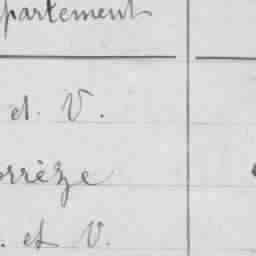 partement
et. V.
orrèze
. et V.